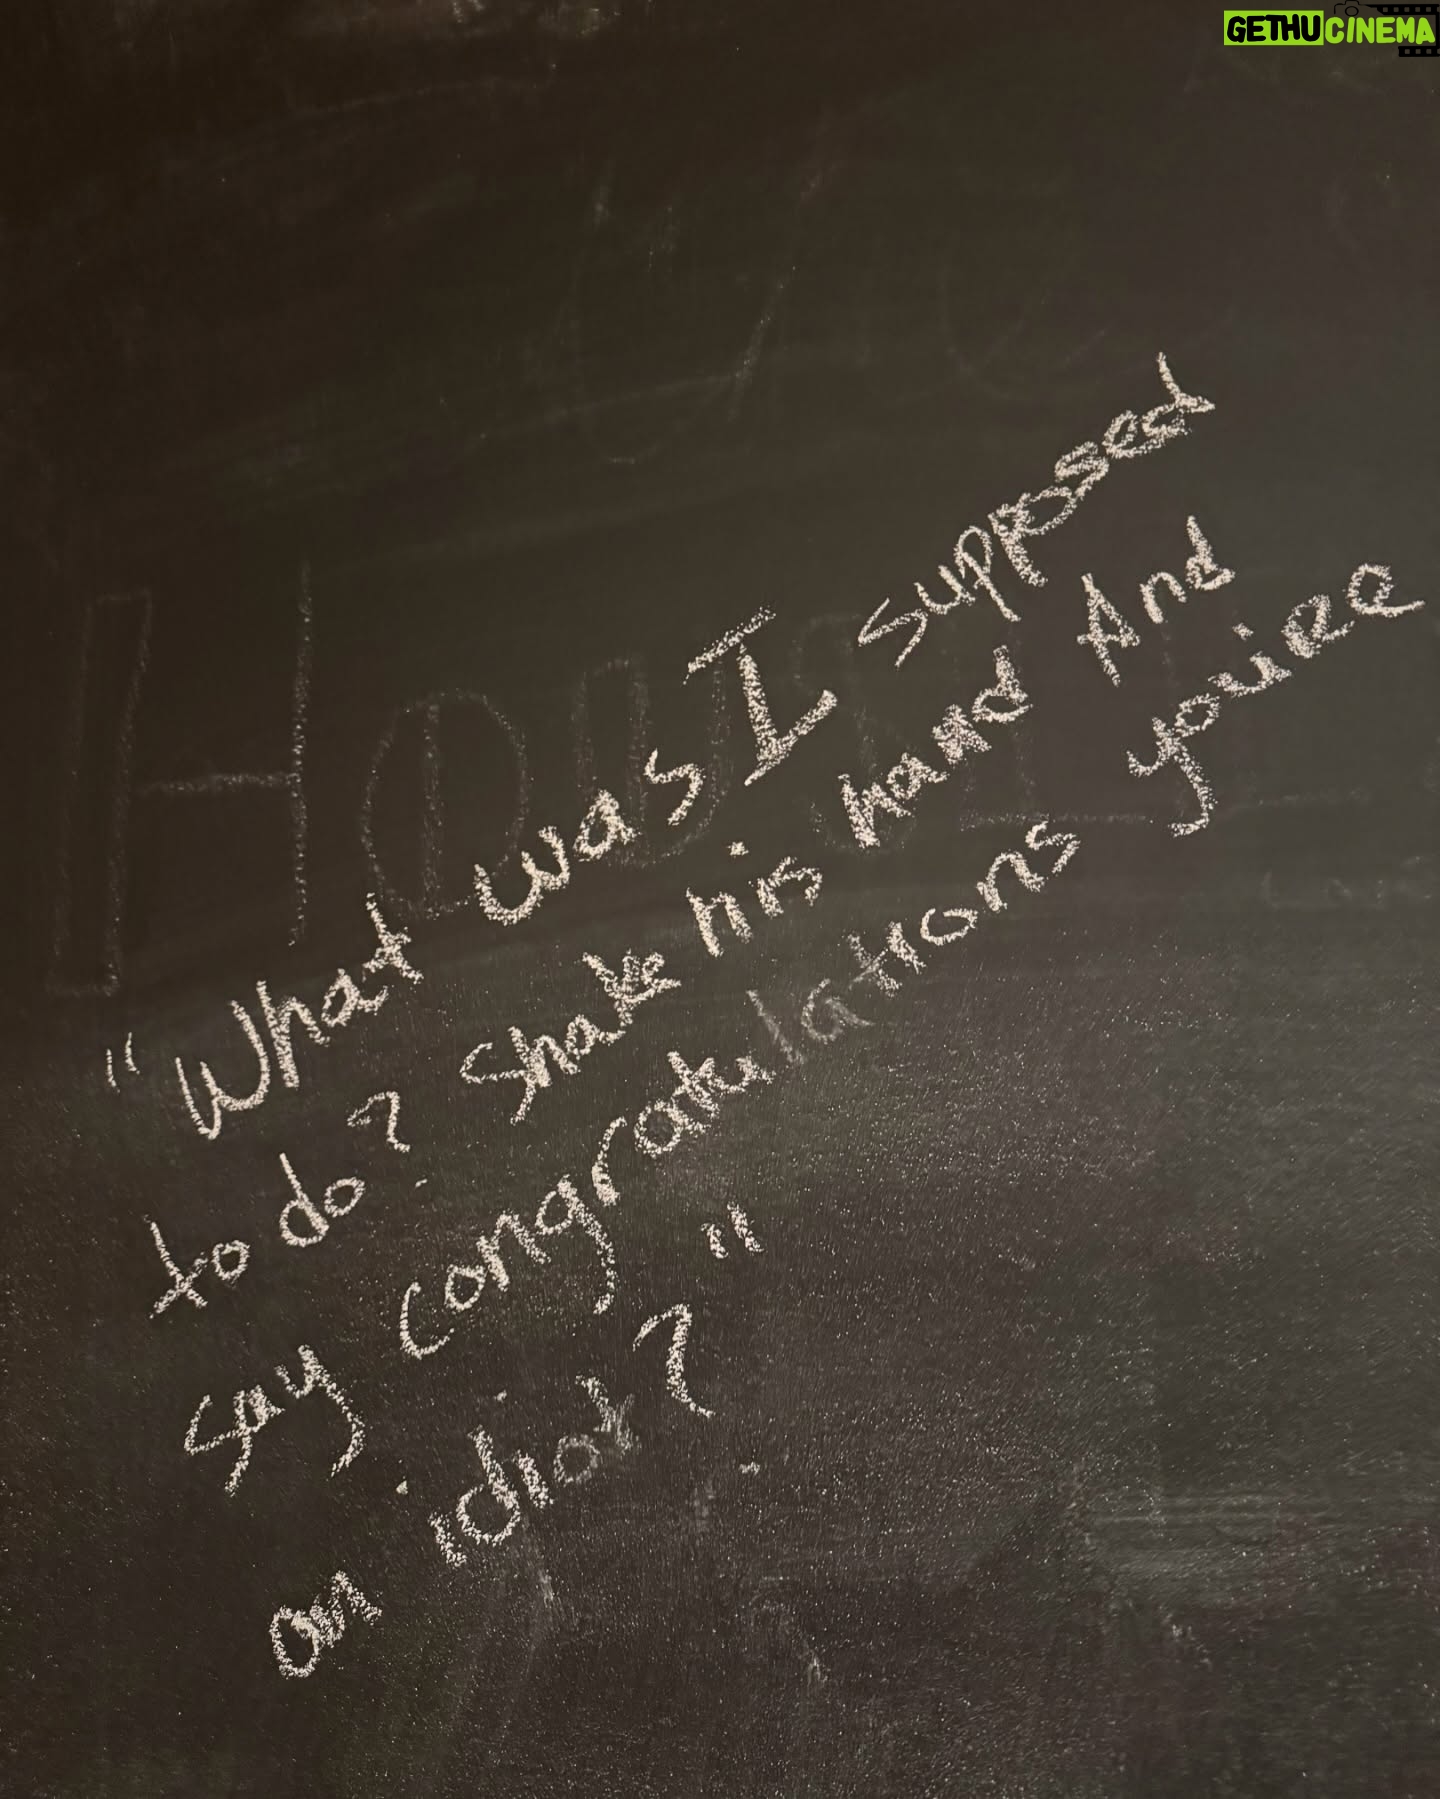 GETHUCINEMA
"What was I supposed
to do? Shake his hand And
say congratulations you're
an idiot?"